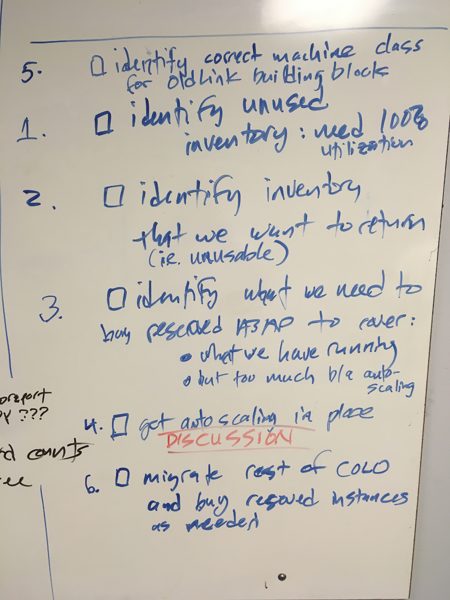 5. identify correct machine class
for Oldlink building blocks
1. identify unused
inventory: need 100%
utilization
2. identify inventory
that we want to return
(i.e. unusable)
3. identify what we need to
buy reserved ASAP to cover:
• what we have running
• but too much b/c auto-
scaling
4. get autoscaling in place
DISCUSSION
6. migrate rest of COLO
and buy reserved instances
as needed
???
counts